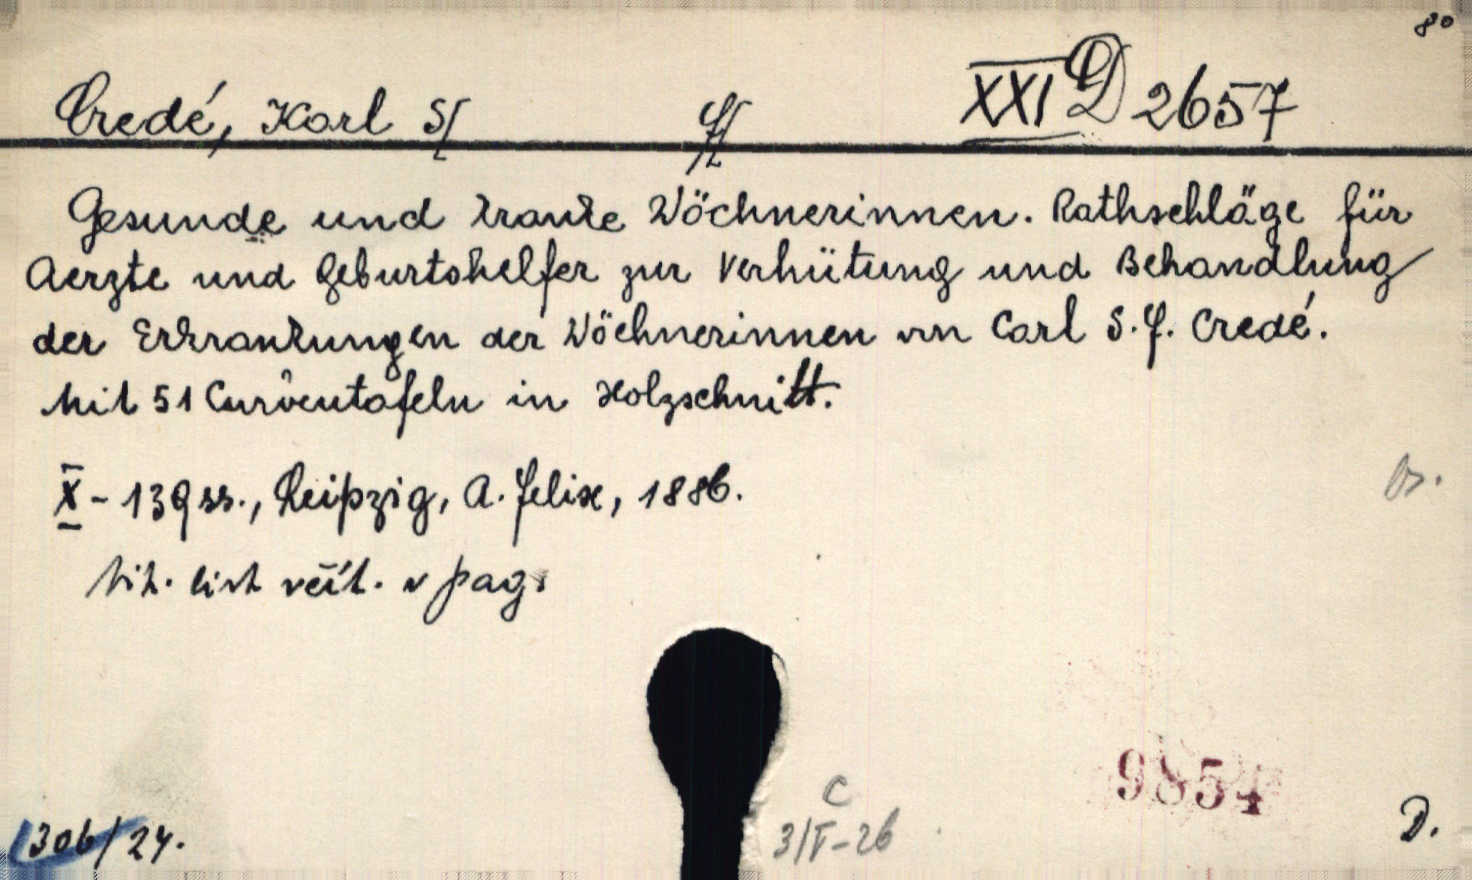 80
Credé, Karl S[ f[ XXI D 2657
Gesunde und kranke Wöchnerinnen. Rathschläge für
Aerzte und Geburtshelfer zur Verhütung und Behandlung
der Erkrankungen der Wöchnerinnen von Carl S. F. Credé.
Mit 51 Curventafeln in Holzschnitt.
X - 139 ss., Leipzig, A. Felix, 1886.
tit. list věít. v pag.
9854
C
3/V-26
306/24.
D.